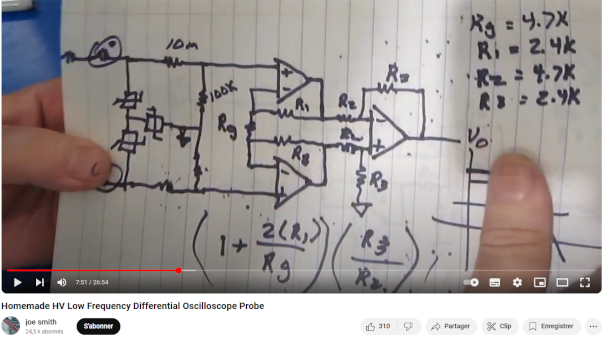 Rg = 4.7K
R1 = 2.4K
R2 = 4.7K
R3 = 2.4K
10m
100K
R1
Rg
R2
R3
R3
Vo
(1 + 2(R1) / Rg) (R3 / R2)
7:51 / 26:54
Homemade HV Low Frequency Differential Oscilloscope Probe
joe smith
24,5 k abonnés
S'abonner
310
Partager
Clip
Enregistrer